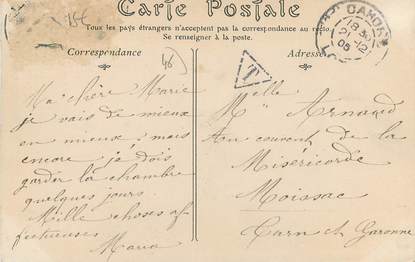 15c
Carte Postale
Tous les pays étrangers n'acceptent pas la correspondance au recto
Se renseigner à la poste.
Correspondance
Adresse
46
CAHORS
18 30
21 -12
05
LOT
T
Ma chère Marie
je vais de mieux
en mieux; mais
encore je dois
garder la chambre
quelques jours
Mille choses af
fectueuses
Maria
Melle Arnaud
Au couvent de la
Miséricorde
Moissac
Tarn et Garonne